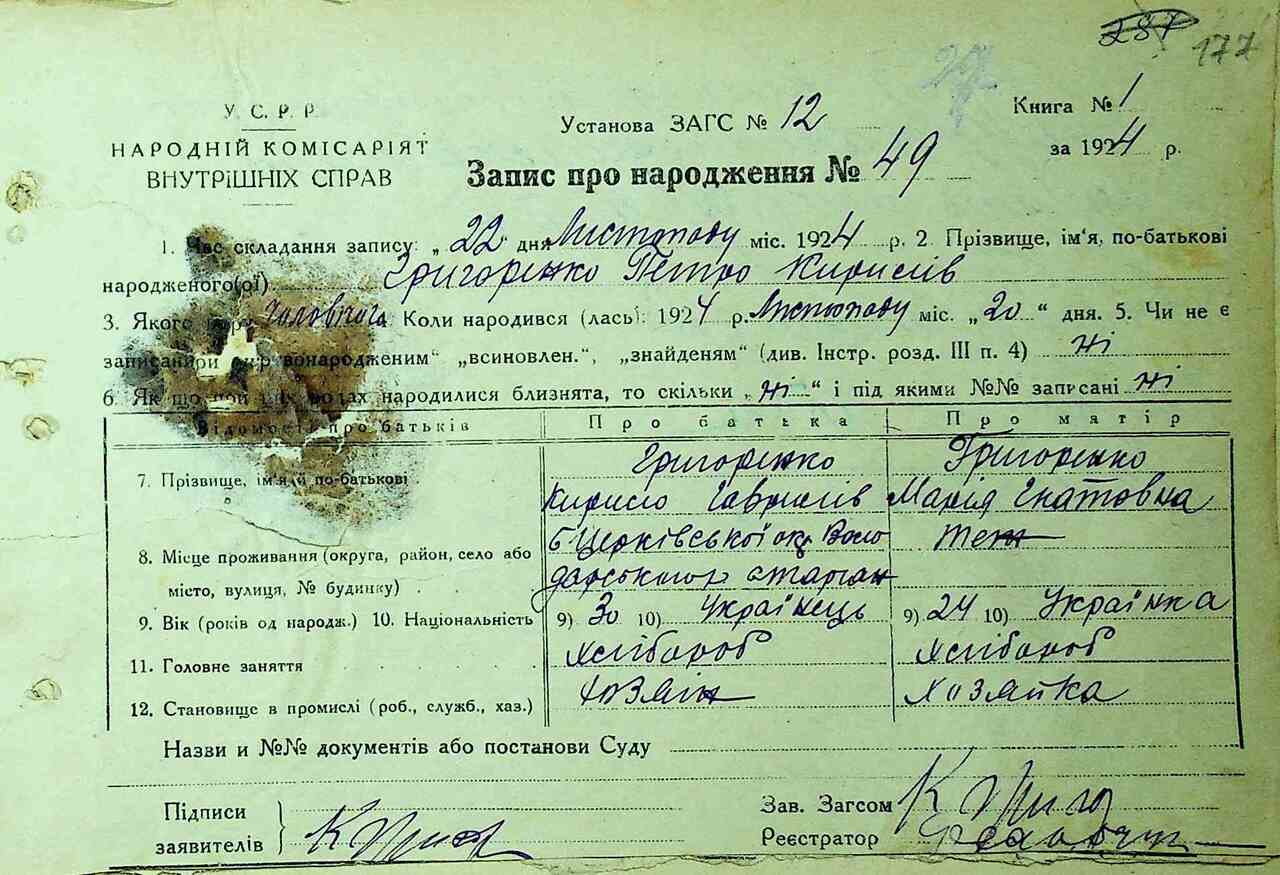 177
У. С. Р. Р.
НАРОДНІЙ КОМІСАРІЯТ
ВНУТРІШНІХ СПРАВ
Установа ЗАГС № 12
Книга № 1
за 1924 р.
Запис про народження № 49
1. Час складання запису: „22" дня Листопаду міс. 1924 р. 2. Прізвище, ім'я, по-батькові
народженого(ої) Григоренко Петро Кирилів
3. Якого Чоловічого Коли народився (лась): 1924 р. Листопаду міс. „20" дня. 5. Чи не є
„всиновлен.", „знайденям" (див. Інстр. розд. III п. 4) Ні
6. Як що при народилися близнята, то скільки „Ні" і під якими №№ записані Ні
Відомості про батьків Про батька Про матір
7. Прізвище, ім'я й по-батькові Григоренко Григоренко
Кирило Гаврилів Марія Гнатовна
8. Місце проживання (округа, район, село або Б Церківської окр. Воло теж
місто, вулиця, № будинку) дарського р
9. Вік (років од народж.) 10. Національність 9) 30 10) Українець 9) 24 10) Українка
11. Головне заняття Хлібороб Хлібороб
12. Становище в промислі (роб., служб., хаз.) Хозяін Хозяйка
Назви и №№ документів або постанови Суду
Підписи
заявителів К Григ
Зав. Загсом К Григо
Реєстратор